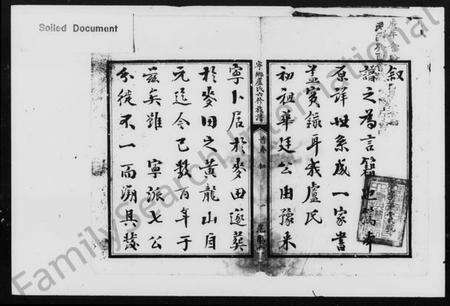 Soiled Document
叙
譜之為言簿也篤本
原詳世系成一家書
盖實錄耳我盧氏
初祖華廷公由豫來
寧鄉盧氏六修族譜
寧卜居於麥田遂葬
於麥田之黃龍山自
元迄今已数百年于
茲矣雖寧派七公
分徙不一而溯其發
FamilySearch International